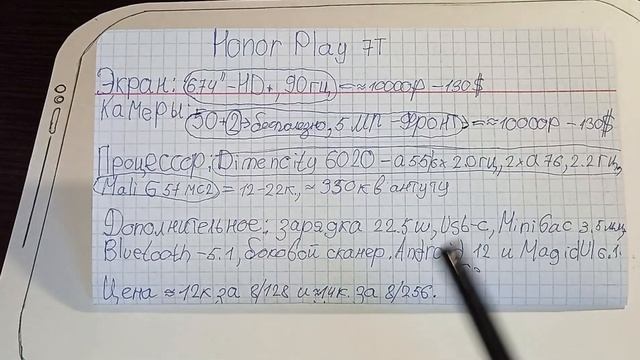 Honor Play 7T
Экран: 6.74"-HD+, 90Гц =≈10000р-130$
Камеры:
50+2→бесполезно, 5 МП-Фронт =≈10000р-130$
Процессор: Dimencity 6020-a55 6x2.0Гц, 2xa76, 2.2Гц,
Mali G57 MC2 = 12-22к, ≈330к в антуту
Дополнительное: зарядка 22.5w, Usb-c, Mini бас 3.5мм,
Bluetooth-5.1, боковой сканер. Android 12 и MagidUI 6.1.
Цена ≈12к за 8/128 и ≈14к. за 8/256.